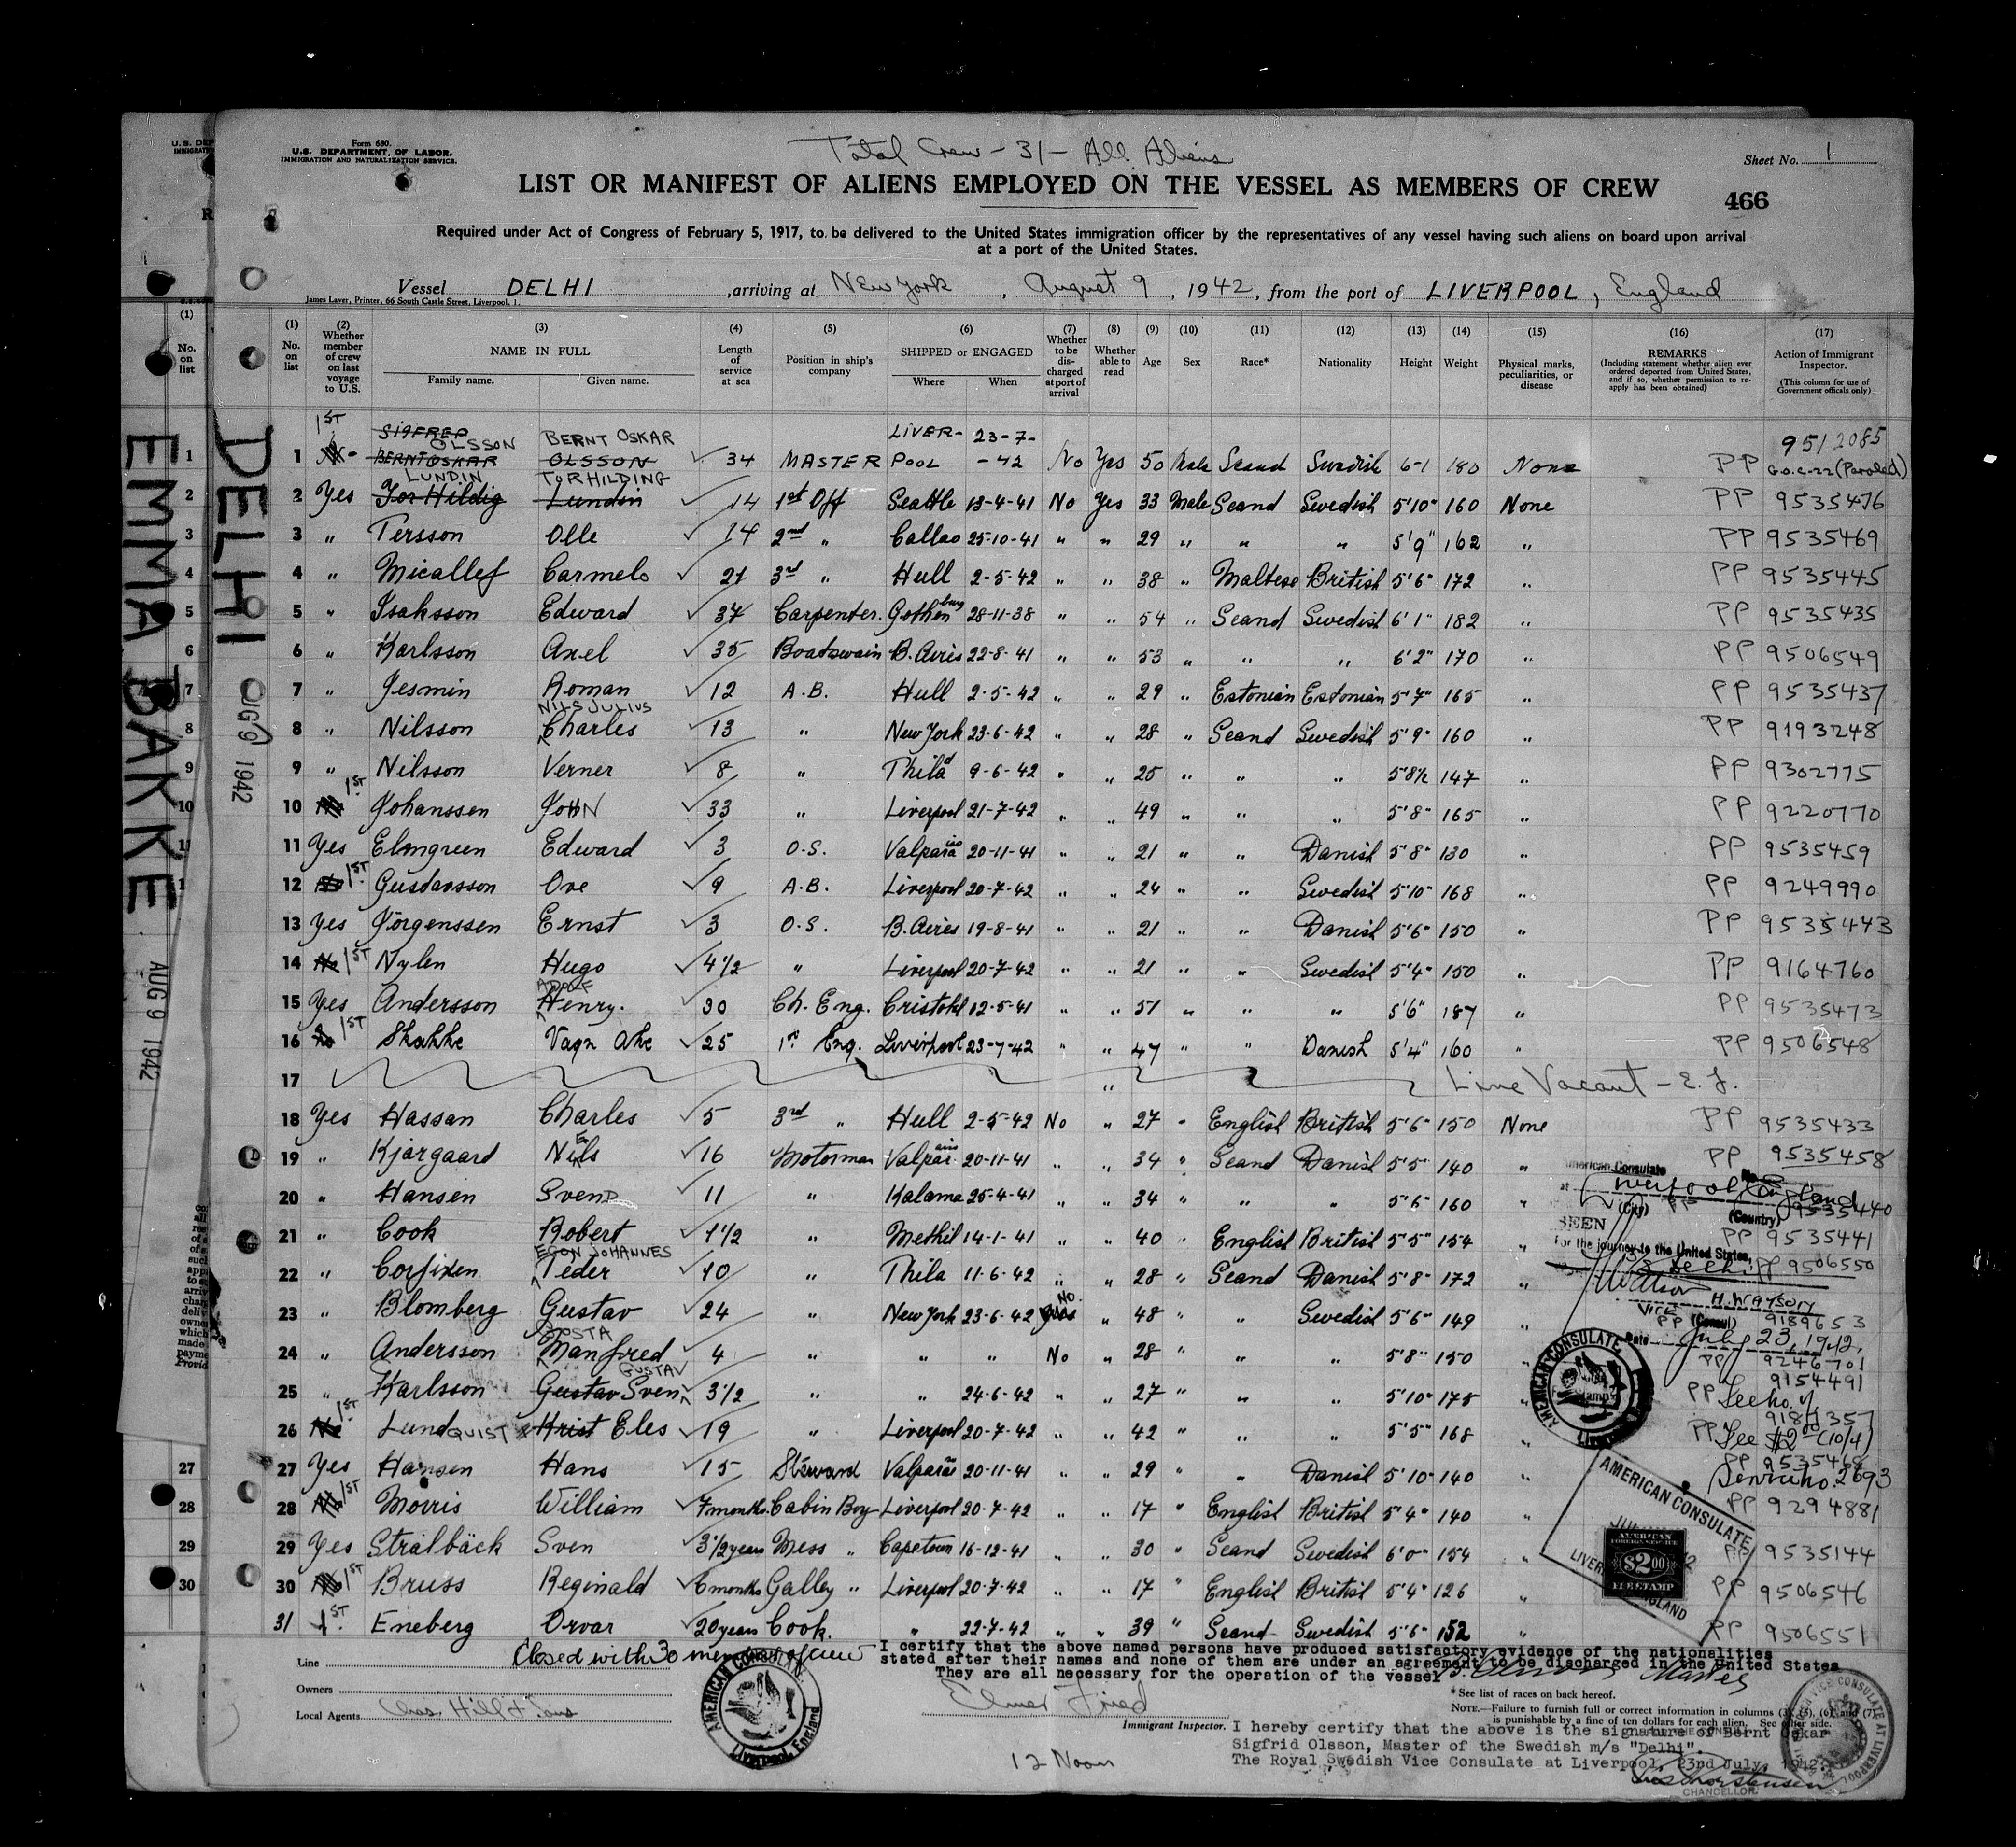 U.S. DEP
IMMIGRATI
Form 680.
U.S. DEPARTMENT OF LABOR.
IMMIGRATION AND NATURALIZATION SERVICE.
Total Crew - 31 - All Aliens
Sheet No. 1
LIST OR MANIFEST OF ALIENS EMPLOYED ON THE VESSEL AS MEMBERS OF CREW
466
Required under Act of Congress of February 5, 1917, to be delivered to the United States immigration officer by the representatives of any vessel having such aliens on board upon arrival
at a port of the United States.
Vessel DELHI, arriving at New York, August 9, 1942, from the port of LIVERPOOL, England
James Laver, Printer, 66 South Castle Street, Liverpool, 1.
(1) No. on list
(2) Whether member of crew on last voyage to U.S.
(3) NAME IN FULL Family name. Given name.
(4) Length of service at sea
(5) Position in ship's company
(6) SHIPPED or ENGAGED Where When
(7) Whether to be discharged at port of arrival
(8) Whether able to read
(9) Age
(10) Sex
(11) Race*
(12) Nationality
(13) Height
(14) Weight
(15) Physical marks, peculiarities, or disease
(16) REMARKS (Including statement whether alien ever ordered deported from United States, and if so, whether permission to re-apply has been obtained)
(17) Action of Immigrant Inspector. (This column for use of Government officals only)
DELHI
AUG 9 1942
EMMA BAKKE
AUG 9 1942
1ST SIGFRED OLSSON BERNT OSKAR LIVER- 23-7- 9512085
1 BERNT OSKAR OLSSON 34 MASTER POOL -42 No Yes 50 Male Scand Swedish 6-1 180 None PP G.O.C-22 (Paroled)
LUNDIN TOR HILDING
2 Yes Tor Hildig Lundin 14 1st Off Seattle 13-4-41 No Yes 33 Male Scand Swedish 5'10" 160 None PP 9535476
3 " Persson Olle 14 2nd " Callao 25-10-41 " " 29 " " " 5'9" 162 " PP 9535469
4 " Micallef Carmelo 21 3rd " Hull 2-5-42 " " 38 " Maltese British 5'6" 172 " PP 9535445
5 " Isaksson Edward 37 Carpenter. Gothenburg 28-11-38 " " 54 " Scand Swedish 6'1" 182 " PP 9535435
6 " Karlsson Axel 35 Boatswain B. Aires 22-8-41 " " 53 " " " 6'2" 170 " PP 9506549
7 " Jesmin Roman 12 A.B. Hull 2-5-42 " " 29 " Estonian Estonian 5'7" 165 " PP 9535437
NILS JULIUS
8 " Nilsson Charles 13 " New York 23-6-42 " " 28 " Scand Swedish 5'9" 160 " PP 9193248
9 " Nilsson Verner 8 " Phila 9-6-42 " " 25 " " " 5'8½ 147 " PP 9302775
10 1ST Johanssen John 33 " Liverpool 21-7-42 " " 49 " " " 5'8" 165 " PP 9220770
11 Yes Elmgreen Edward 3 O.S. Valparaiso 20-11-41 " " 21 " " Danish 5'8" 130 " PP 9535459
12 No 1ST Gustavsson Ove 9 A.B. Liverpool 20-7-42 " " 24 " " Swedish 5'10" 168 " PP 9249990
13 Yes Jörgenssen Ernst 3 O.S. B. Aires 19-8-41 " " 21 " " Danish 5'6" 150 " PP 9535443
14 No 1ST Nylen Hugo 4½ " Liverpool 20-7-42 " " 21 " " Swedish 5'4" 150 " PP 9164760
15 Yes Andersson Henry. 30 Ch. Eng. Cristobl 12-5-41 " " 51 " " " 5'6" 187 " PP 9535473
16 No 1ST Skakke Vagn Ake 25 1st Eng. Liverpool 23-7-42 " " 47 " " Danish 5'4" 160 " PP 9506548
17 " Line Vacant - E. F.
18 Yes Hassan Charles 5 3rd " Hull 2-5-42 No " 27 " English British 5'6" 150 None PP 9535433
19 " Kjärgaard Niels 16 Motorman Valparaiso 20-11-41 " " 34 " Scand Danish 5'5" 140 " PP 9535458
20 " Hansen Svend 11 " Kalama 25-4-41 " " 34 " " " 5'6" 160 " PP 9535440
21 " Cook Robert 1½ " Methil 14-1-41 " " 40 " English British 5'5" 154 " PP 9535441
EGON JOHANNES
22 " Corfixen Peder 10 " Phila 11-6-42 " " 28 " Scand Danish 5'8" 172 " PP 9506550
23 " Blomberg Gustav 24 " New York 23-6-42 No " 48 " " Swedish 5'6" 149 " PP 9189653
GOSTA
24 " Andersson Manfred 4 " " " No " 28 " " " 5'8" 150 " PP 9246701
GUSTAV
25 " Karlsson Gustav Sven 3½ " " 24-6-42 " " 27 " " " 5'10" 175 " PP 9154491
26 No 1ST LundQUIST Krist Eles 19 " Liverpool 20-7-42 " " 42 " " " 5'5" 168 " PP 9184357
27 Yes Hansen Hans 15 Steward Valparaiso 20-11-41 " " 29 " " Danish 5'10" 140 " PP 9535468
28 No 1ST Morris William 7 months. Cabin Boy Liverpool 20-7-42 " " 17 " English British 5'4" 140 " PP 9294881
29 Yes Stralbäck Sven 3½ years Mess " Capetown 16-12-41 " " 30 " Scand Swedish 6'0" 154 " PP 9535144
30 No 1ST Bruss Reginald 6 months Galley " Liverpool 20-7-42 " " 17 " English British 5'4" 126 " PP 9506546
31 1ST Eneberg Orvar 20 years Cook. " 22-7-42 " " 39 " Scand Swedish 5'6" 152 " PP 9506551
American Consulate
at Liverpool, England
(City) (Country)
SEEN
For the journey to the United States,
H. Watson
Vice (Consul)
Date July 23, 1942.
Fee $2.00 (10/4)
Service no. 2693
AMERICAN CONSULATE
AMERICAN CONSULATE
LIVERPOOL ENGLAND
AMERICAN
FOREIGN SERVICE
$2.00
FEE STAMP
Closed with 30 members of crew
I certify that the above named persons have produced satisfactory evidence of the nationalities
stated after their names and none of them are under an agreement to be discharged in the United States
They are all necessary for the operation of the vessel
Master
Line
Owners
Local Agents Chas. Hill & Sons
AMERICAN CONSULATE
Liverpool, England
Elmer Fried
Immigrant Inspector.
12 Noon
* See list of races on back hereof.
NOTE.—Failure to furnish full or correct information in columns (3), (5), (6), and (7)
is punishable by a fine of ten dollars for each alien. See other side.
I hereby certify that the above is the signature of Bernt Oskar
Sigfrid Olsson, Master of the Swedish m/s "Delhi".
The Royal Swedish Vice Consulate at Liverpool, 23nd July, 1942.
CHANCELLOR.